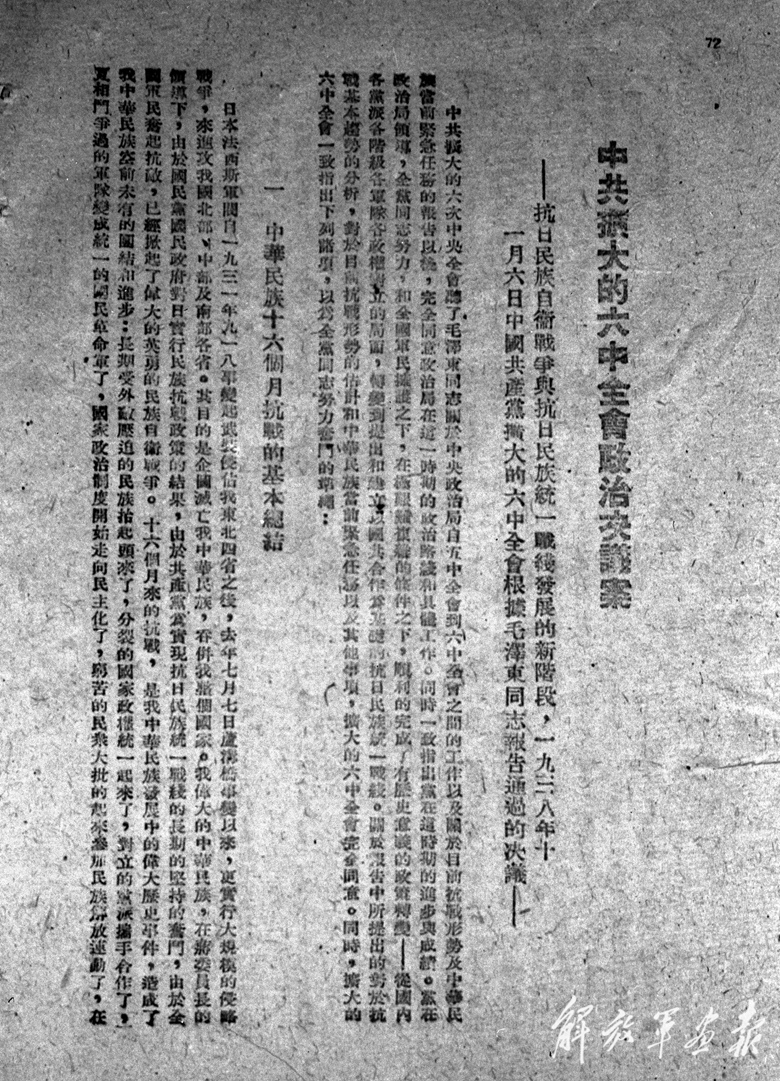 72
中共擴大的六中全會政治決議案
——抗日民族自衛戰爭與抗日民族統一戰綫發展的新階段，一九三八年十
一月六日中國共產黨擴大的六中全會根據毛澤東同志報告通過的決議——
中共擴大的六次中央全會聽了毛澤東同志關於中央政治局自五中全會到六中全會之間的工作以及關於目前抗戰形勢及中華民
族當前緊急任務的報告以後，完全同意政治局在這一時期的政治路綫和具體工作。同時一致指出黨在這時期的進步與成績。黨在
政治局領導，全黨同志努力，和全國軍民擁護之下，在極艱難複雜的條件之下，順利的完成了有歷史意義的政策轉變——從國內
各黨派各階級各軍隊各政權對立的局面，轉變到提出和建立以國共合作為基礎的抗日民族統一戰綫。關於報告中所提出的對於抗
戰基本趨勢的分析，對於目前抗戰形勢的估計和中華民族當前緊急任務以及其他事項，擴大的六中全會完全同意。同時，擴大的
六中全會一致指出下列諸項，以為全黨同志努力奮鬥的準繩：
一　中華民族十六個月抗戰的基本總結
日本法西斯軍閥自一九三一年九一八事變起武裝侵佔我東北四省之後，去年七月七日蘆溝橋事變以來，更實行大規模的侵略
戰爭，來進攻我國北部、中部及南部各省。其目的是企圖滅亡我中華民族，吞併我整個國家。我偉大的中華民族，在蔣委員長的
領導下，由於國民黨國民政府對日實行民族抗戰政策的結果，由於共產黨為實現抗日民族統一戰綫的長期的堅持的奮鬥，由於全
國軍民奮起抗敵，已經掀起了偉大的英勇的民族自衛戰爭。十六個月來的抗戰，是我中華民族發展中的偉大歷史事件，造成了
我中華民族空前未有的團結和進步：長期受外敵壓迫的民族抬起頭來了，分裂的國家政權統一起來了，對立的黨派攜手合作了，
互相鬥爭過的軍隊變成統一的國民革命軍了，國家政治制度開始走向民主化了，窮苦的民衆大批的起來參加民族解放運動了，在
解放軍畫報